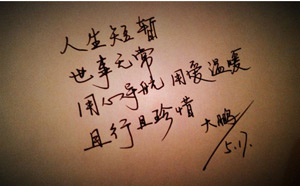 人生短暂
世事无常
用心导航 用爱温暖
且行且珍惜 大鹏
5.17.